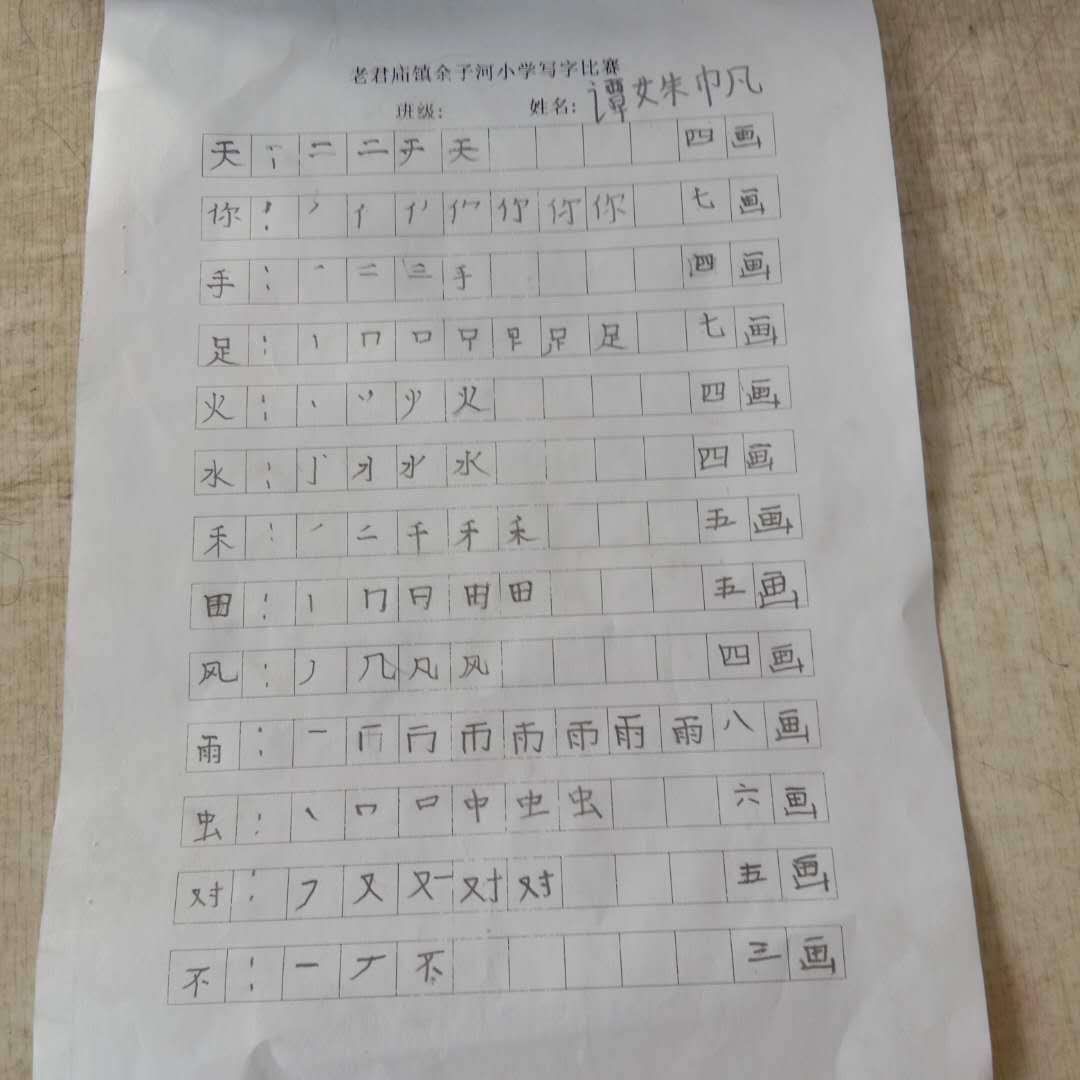 老君庙镇余子河小学写字比赛
班级: 姓名: 谭姝帆
天 : 二 二 天 天 四 画
你 : 丿 亻 你 你 你 七 画
手 : 一 二 三 手 四 画
足 : 丨 冂 口 足 足 七 画
火 : 丶 丷 火 四 画
水 : 亅 水 四 画
禾 : 丿 二 千 禾 五 画
田 : 丨 冂 日 田 田 五 画
风 : 丿 几 凡 风 四 画
雨 : 一 冂 币 雨 雨 雨 八 画
虫 : 丶 冖 口 中 虫 虫 六 画
对 : フ 又 对 对 五 画
不 : 一 丆 不 三 画